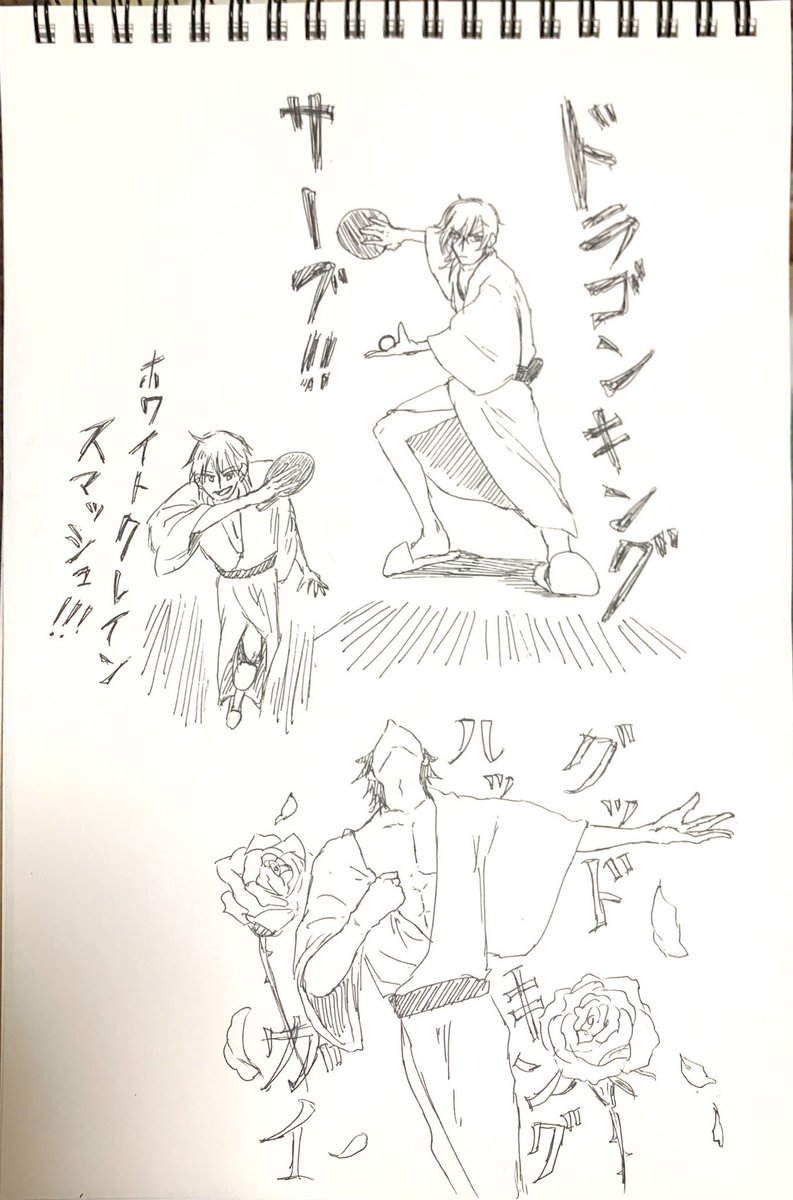 ドラゴンキング
サーブ!!
ホワイトクレイン
スマッシュ!!!
グッド
ルッ
キング
ガイ